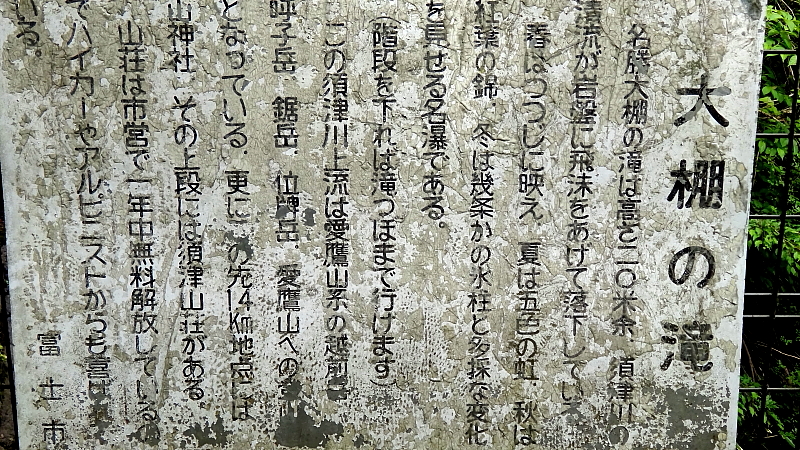 大棚の滝
名勝大棚の滝は高さ二〇米余 須津川の
清流が岩盤に飛沫をあげて落下している
春はつつじに映え 夏は五色の虹 秋は
紅葉の錦 冬は幾条かの氷柱と多採な変化
を見せる名瀑である。
(階段を下れば滝つぼまで行けます)
この須津川上流は愛鷹山系の越前岳
呼子岳 鋸岳 位牌岳 愛鷹山への
となっている 更にこの先1.4Km地点には
山神社 その上段には須津山荘がある
山荘は市営で一年中無料解放しているの
でハイカーやアルピニストからも喜ばれ
いる。
富士市